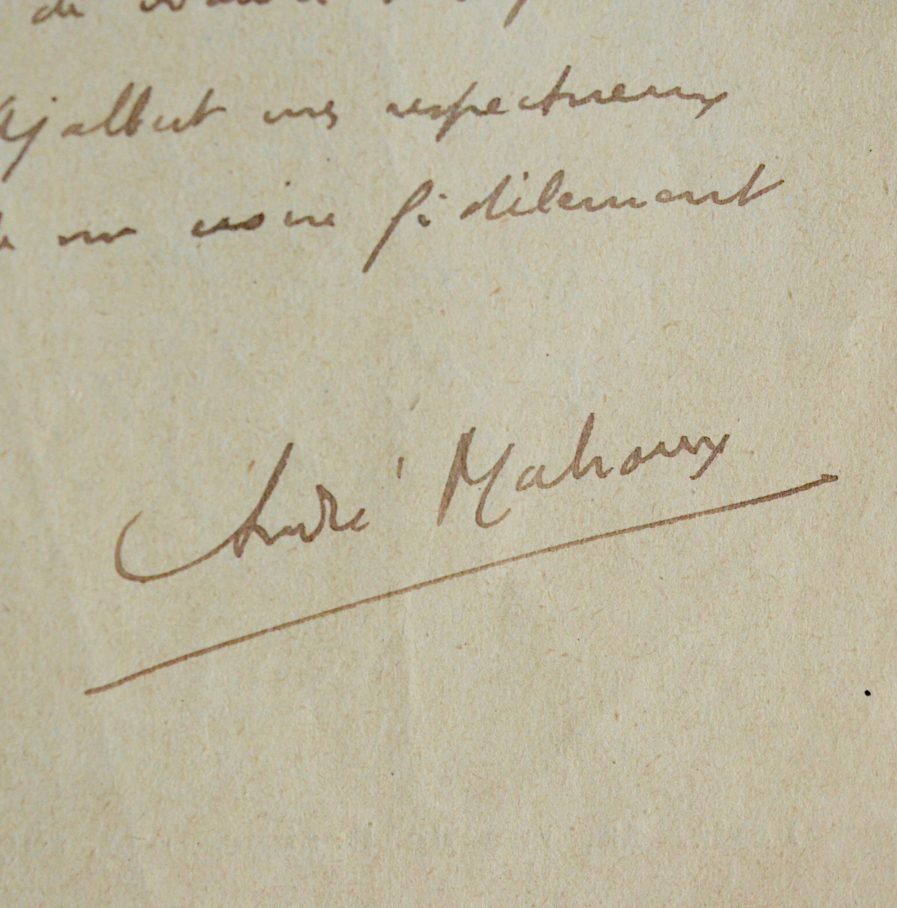 de
Ajalbert mes respectueux
me croire fidèlement
André Malraux